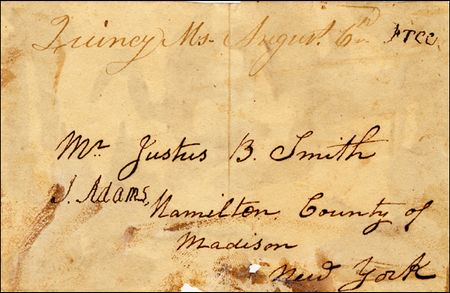 Quincy Ms. August 6th Free
Mr. Justus B. Smith
J. Adams,
Hamilton County of
Madison
New York